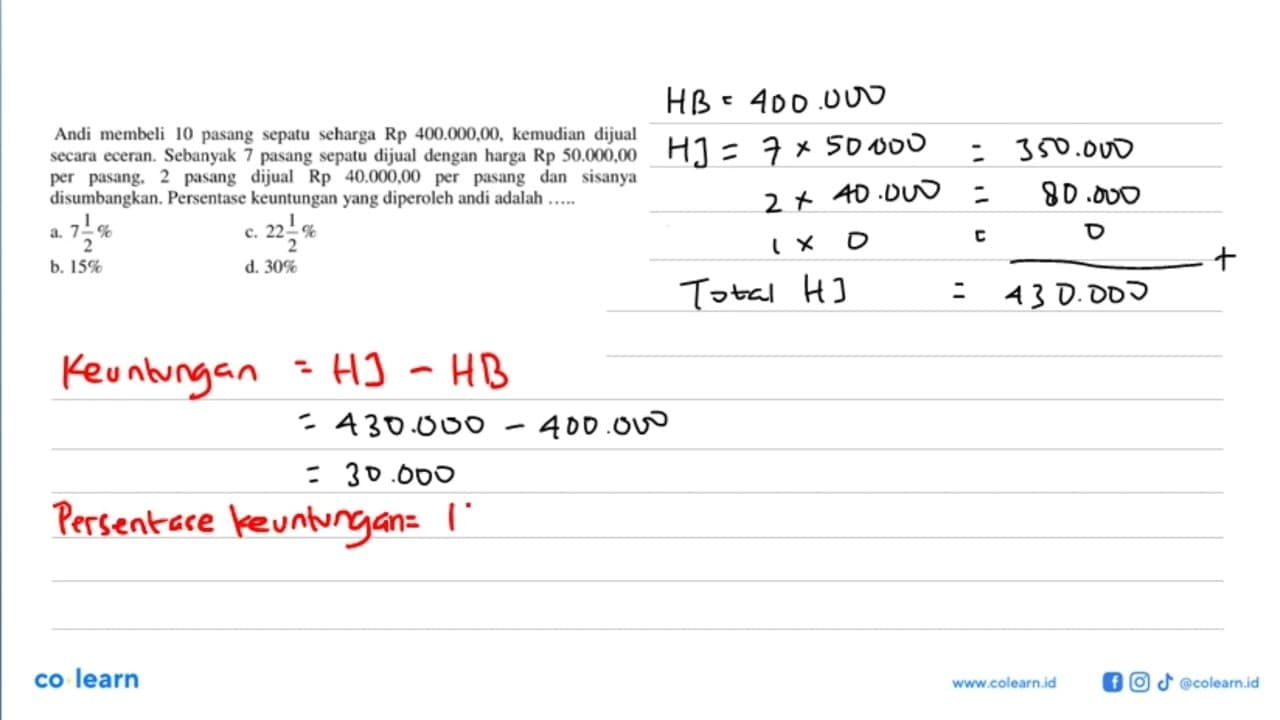 Andi membeli 10 pasang sepatu seharga Rp 400.000,00, kemudian dijual
secara eceran. Sebanyak 7 pasang sepatu dijual dengan harga Rp 50.000,00
per pasang, 2 pasang dijual Rp 40.000,00 per pasang dan sisanya
disumbangkan. Persentase keuntungan yang diperoleh andi adalah .....
a. 7 1/2 %
c. 22 1/2 %
b. 15%
d. 30%
HB = 400.000
HJ = 7 × 50.000 = 350.000
2 × 40.000 = 80.000
1 × 0 = 0
+
Total HJ = 430.000
Keuntungan = HJ - HB
= 430.000 - 400.000
= 30.000
Persentase keuntungan =
co learn
www.colearn.id
@colearn.id